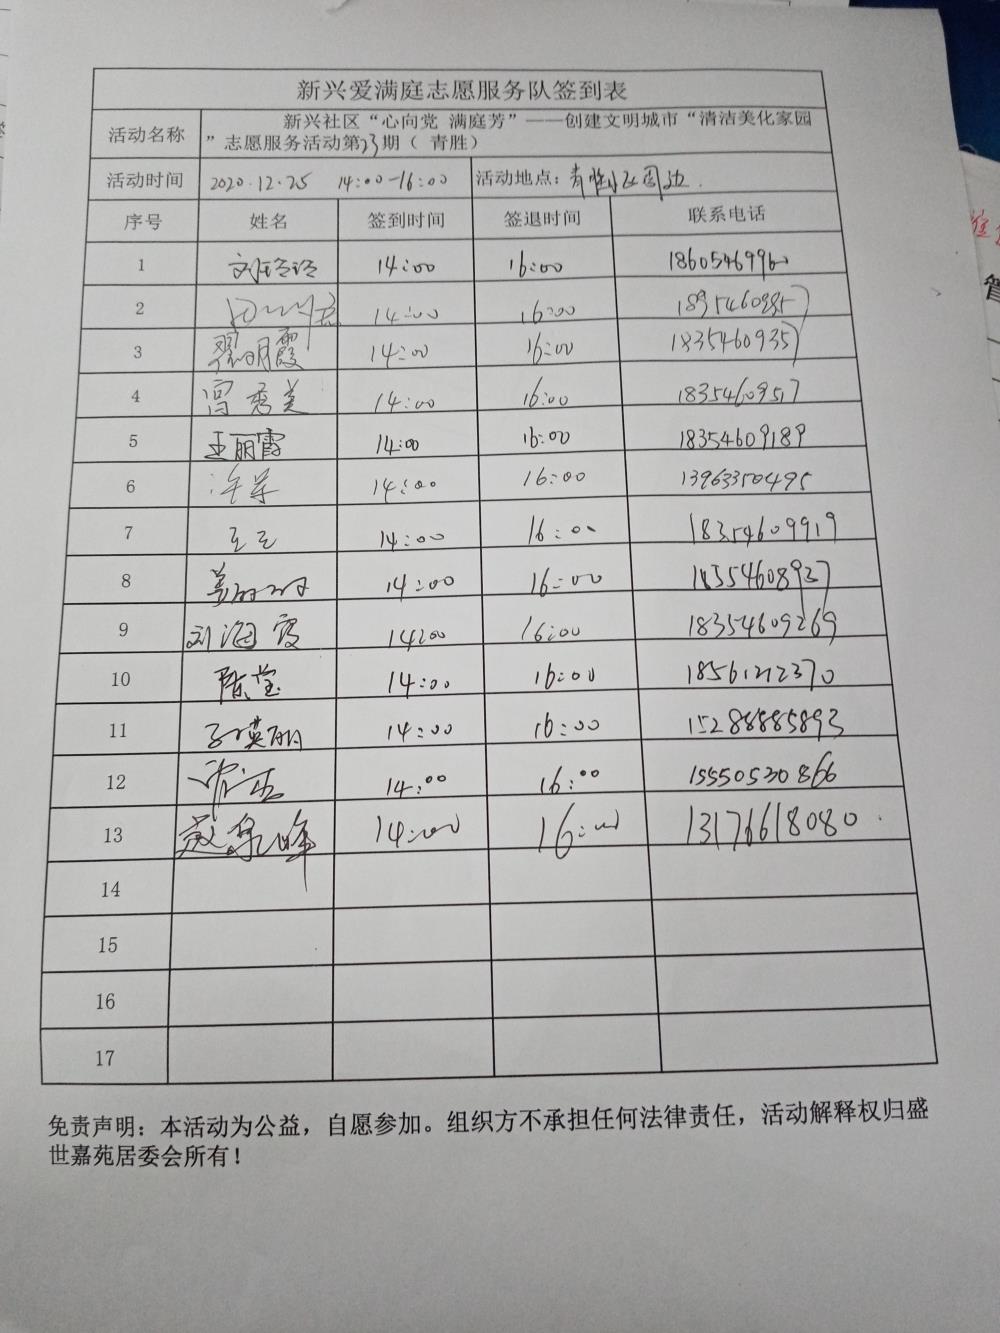 新兴爱满庭志愿服务队签到表
活动名称 新兴社区“心向党 满庭芳”——创建文明城市“清洁美化家园
”志愿服务活动第23期（ 青胜）
活动时间 2020.12.25 14:00-16:00 活动地点: 青胜小区周边.
序号 姓名 签到时间 签退时间 联系电话
1 刘玲玲 14:00 16:00 18605469960
2 14:00 16:00
3 翟明霞 14:00 16:00 18354609357
4 冯秀美 14:00 16:00 18354609517
5 王丽霞 14:00 16:00 18354609189
6 14:00 16:00 13963350495
7 14:00 16:00 18354609919
8 14:00 16:00 18354608937
9 刘海霞 14:00 16:00 18354609269
10 陈莹 14:00 16:00 18561212370
11 14:00 16:00 15288885893
12 14:00 16:00 15550530866
13 14:00 16:00 13176618080
14
15
16
17
免责声明: 本活动为公益，自愿参加。组织方不承担任何法律责任，活动解释权归盛
世嘉苑居委会所有!